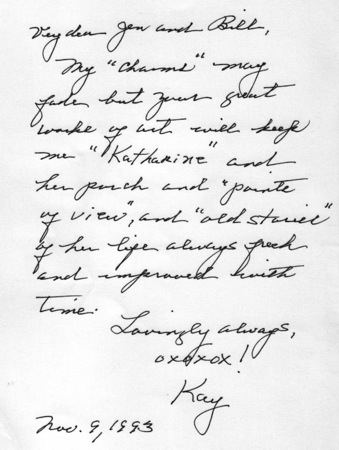 Very dear Jen and Bill,
My "Charms" may
fade but your great
works of art will keep
me "Katharine" and
her porch and "points
of view", and "old stories"
of her life always fresh
and improved with
time.
Lovingly always,
oxoxox!
Kay
Nov. 9, 1993